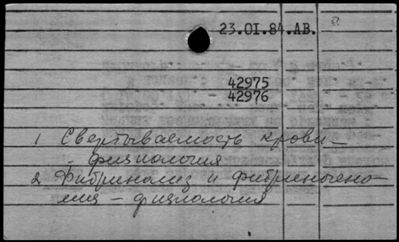 23.OI.84.АВ.
42975
- 42976
1 Свертываемость крови
- физиология
2 Фибринолиз и фибриногено-
лиз - физиология